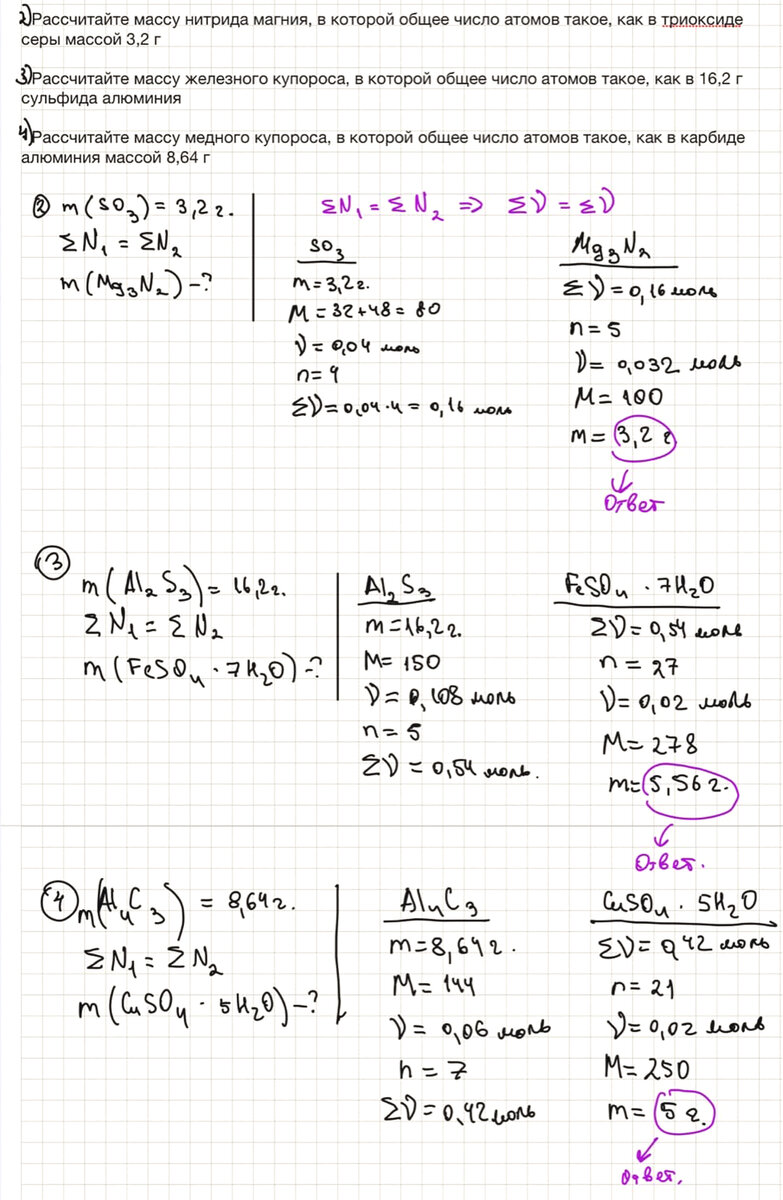 2) Рассчитайте массу нитрида магния, в которой общее число атомов такое, как в триоксиде
серы массой 3,2 г
3) Рассчитайте массу железного купороса, в которой общее число атомов такое, как в 16,2 г
сульфида алюминия
4) Рассчитайте массу медного купороса, в которой общее число атомов такое, как в карбиде
алюминия массой 8,64 г
② m(SO₃) = 3,2 г.
ΣN₁ = ΣN₂
m(Mg₃N₂) – ?
ΣN₁ = ΣN₂ ⇒ Σν = Σν
SO₃
m = 3,2 г.
M = 32+48 = 80
ν = 0,04 моль
n = 4
Σν = 0,04·4 = 0,16 моль
Mg₃N₂
Σν = 0,16 моль
n = 5
ν = 0,032 моль
M = 100
m = 3,2 г
Ответ
③
m(Al₂S₃) = 16,2 г.
ΣN₁ = ΣN₂
m(FeSO₄ · 7H₂O) – ?
Al₂S₃
m = 16,2 г.
M = 150
ν = 0,108 моль
n = 5
Σν = 0,54 моль.
FeSO₄ · 7H₂O
Σν = 0,54 моль
n = 27
ν = 0,02 моль
M = 278
m = 5,56 г.
Ответ.
④ m(Al₄C₃) = 8,64 г.
ΣN₁ = ΣN₂
m(CuSO₄ · 5H₂O) – ?
Al₄C₃
m = 8,64 г.
M = 144
ν = 0,06 моль
n = 7
Σν = 0,42 моль
CuSO₄ · 5H₂O
Σν = 0,42 моль
n = 21
ν = 0,02 моль
M = 250
m = 5 г.
Ответ.